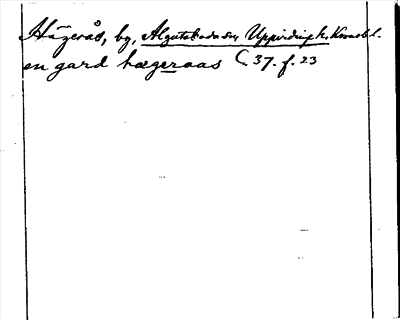 Hägerås, by, Algutsboda sn, Uppvidinge h. Kronob l.
en gard hægeraas (37. f. 23